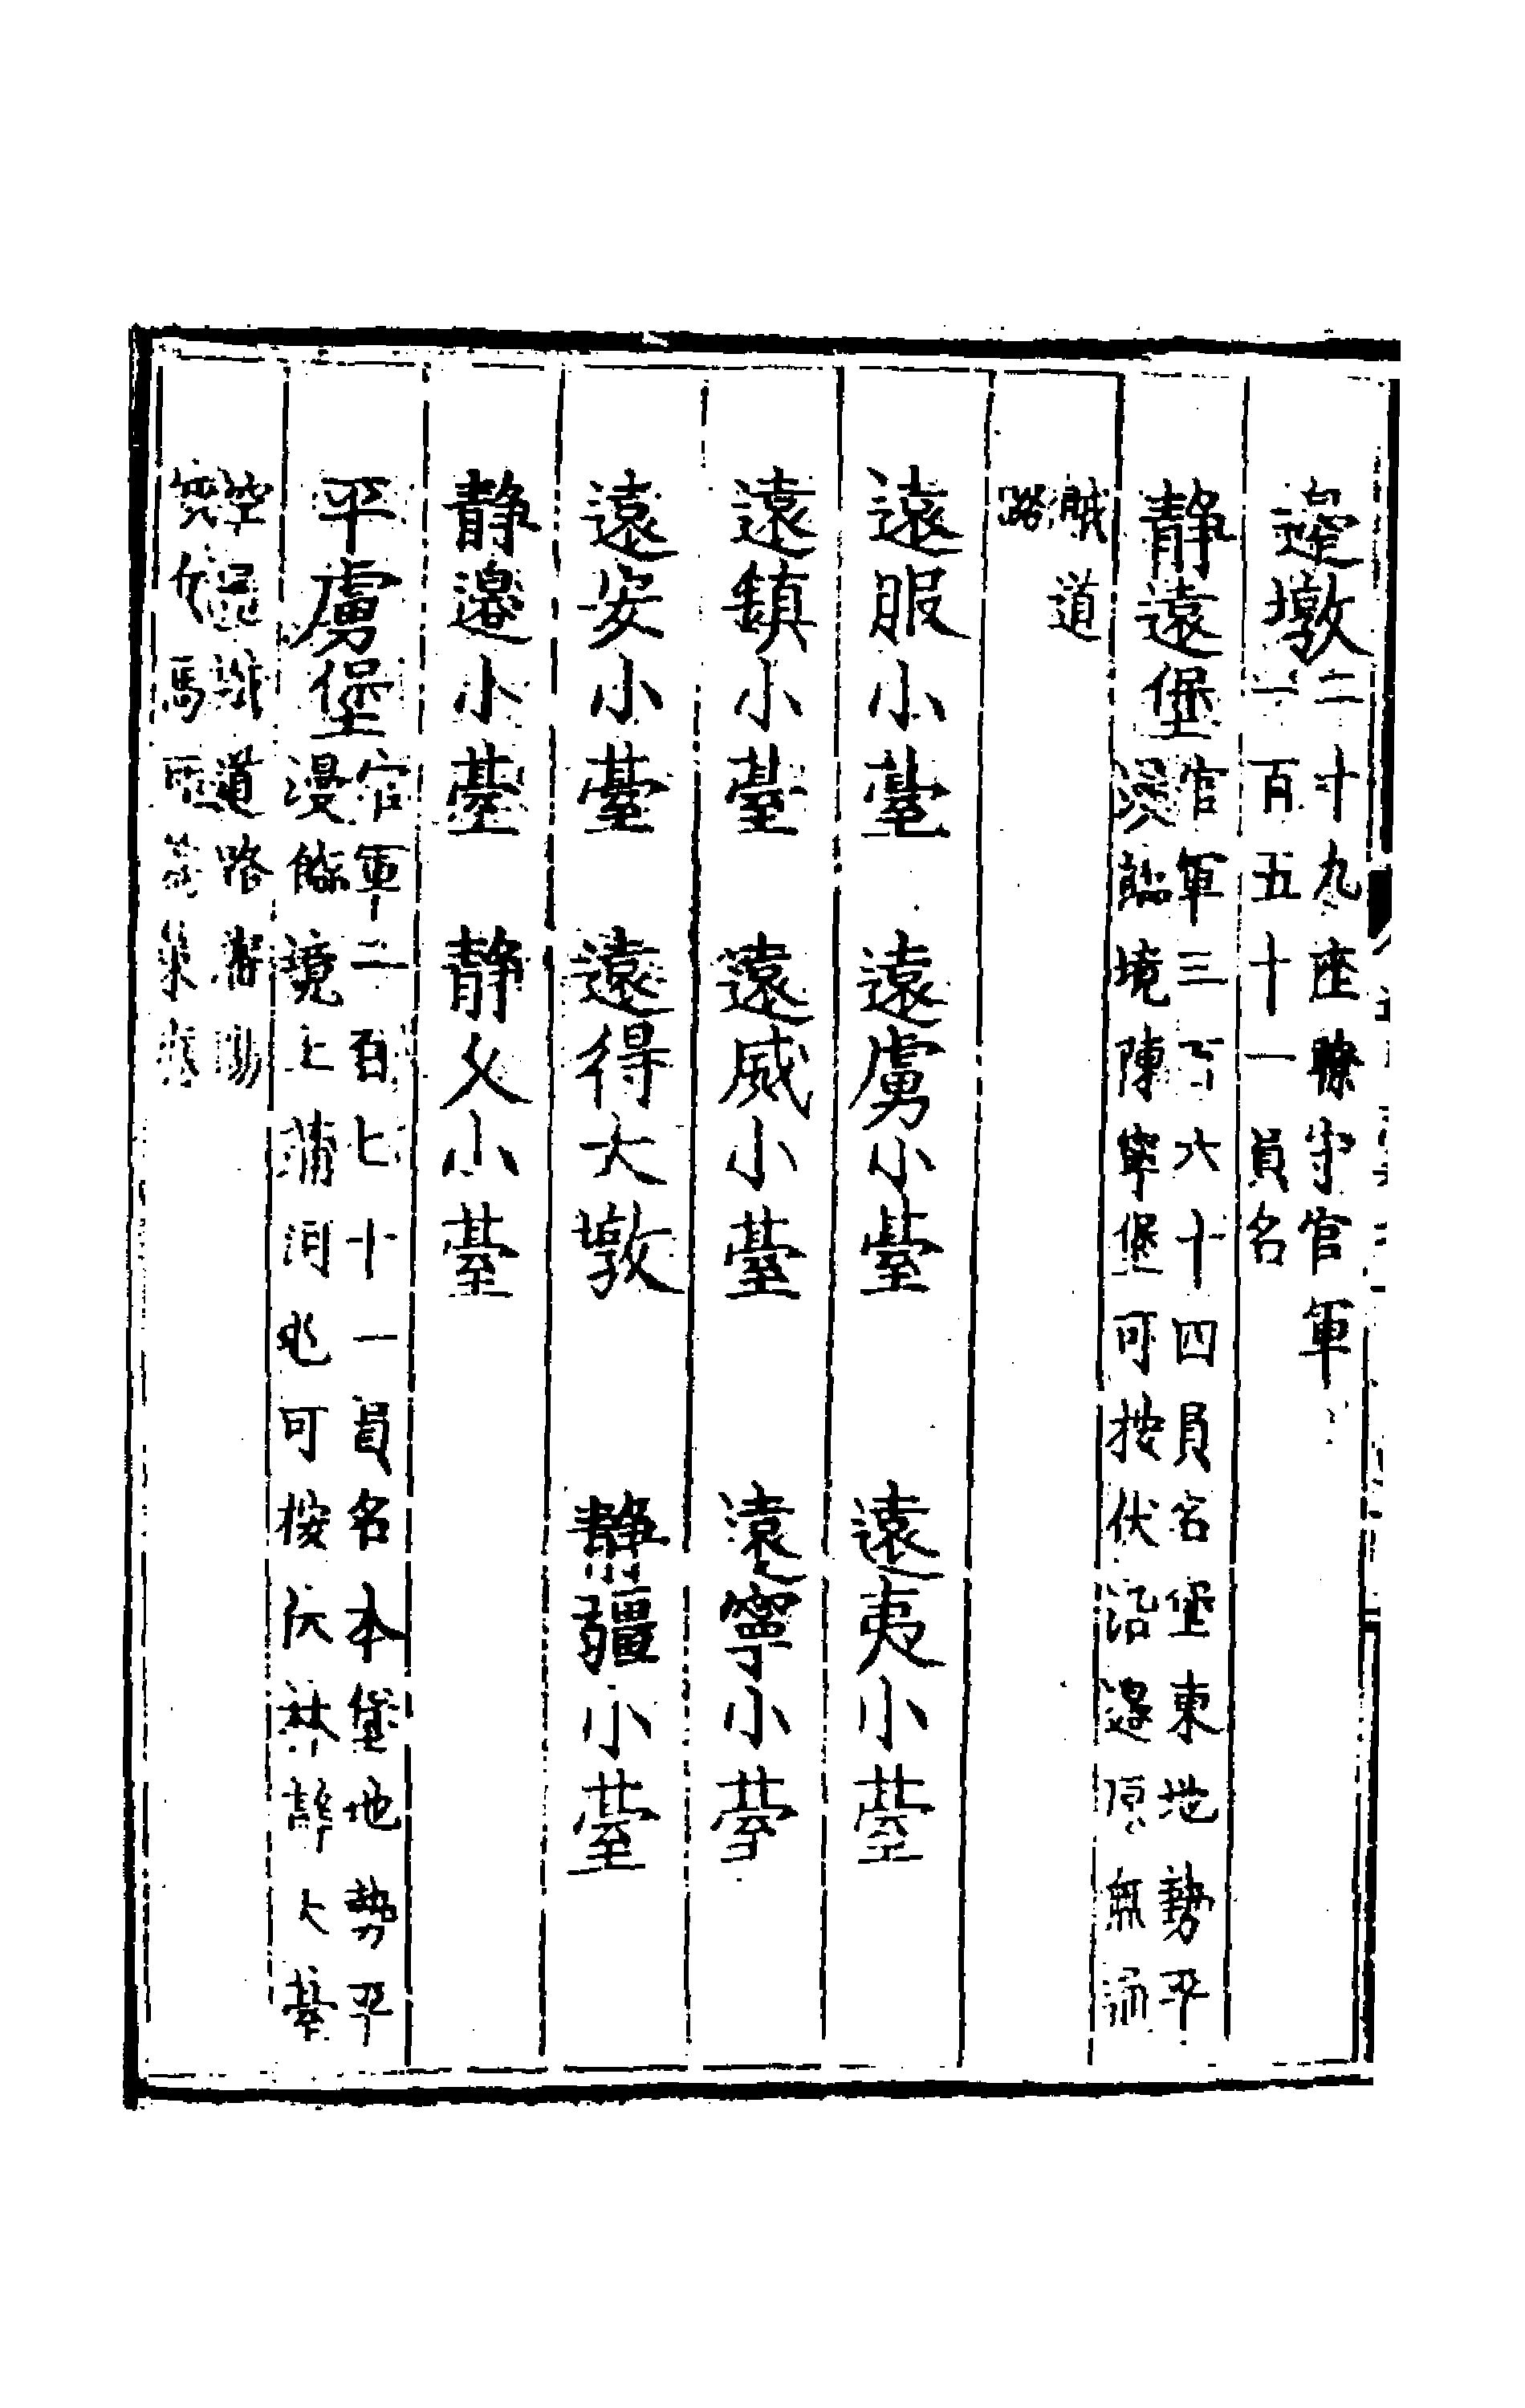 邊墩二十九座瞭守官軍
一百五十一員名
靜遠堡官軍三百六十四員名堡東地勢平
漫臨境陳寧堡可按伏沿邊原無通
賊道
路
遠服小臺 遠虜小臺 遠夷小臺
遠鎮小臺 遠威小臺 遠寧小臺
遠安小臺 遠得大墩 靜疆小臺
靜邊小臺 靜乂小臺
平虜堡官軍二百七十一員名本堡地勢平
漫臨境上蒲河也可按伏 靜大臺
空 道路
馬